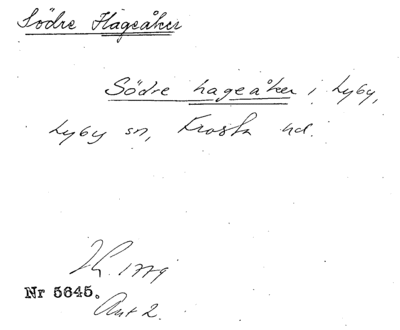 Södre Hageåker
Södre hageåker i Lyby,
Lyby sn, Frosta hd.
1779
Nr 5645.
Akt 2.